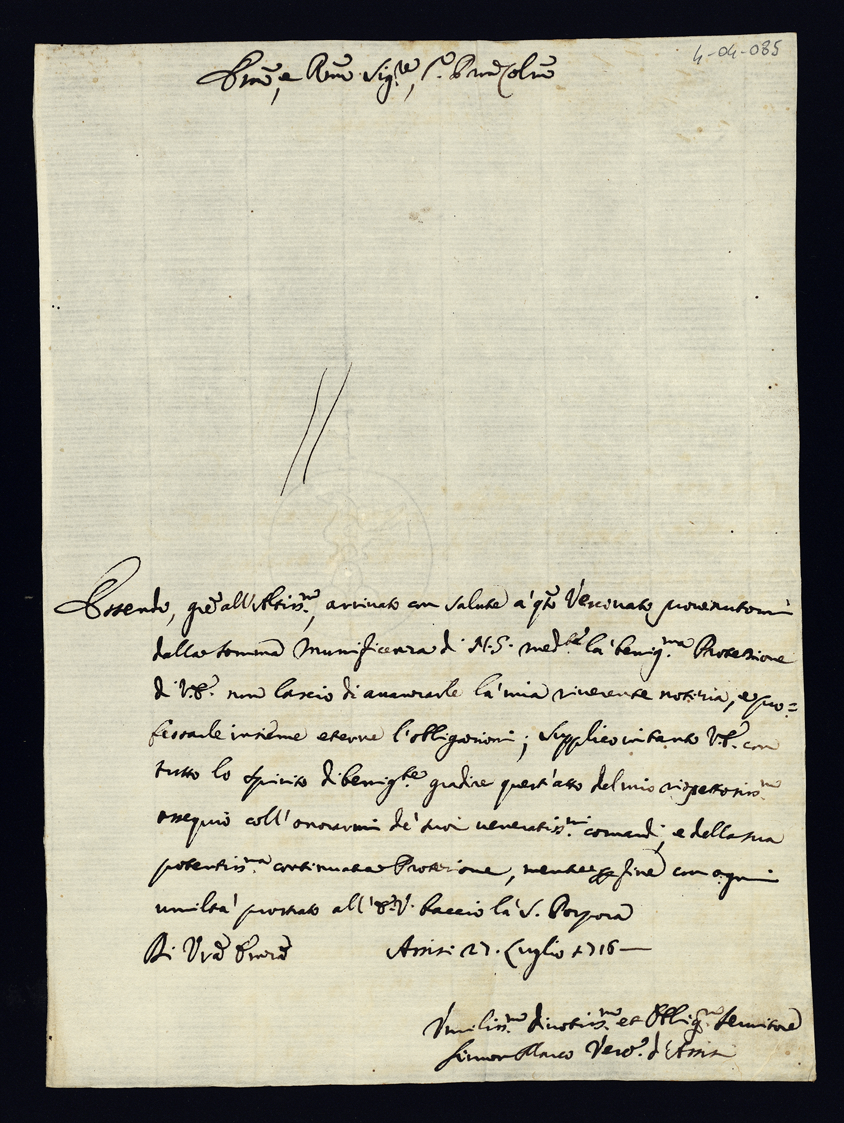 4-04-085
Emō, e Rmō Sig.re, P.rōn Colmō
Essendo, grē all'Altiss.mo, arrivato con salute a' q̄to Vescovato provenutomi
dalla somma Munificenza di N.S. med.te la benig.ma Protezione
di V.E. non lascio di avanzarle la mia riverente notizia, e pro=
fessarle insieme eterne l'obligazioni; supplico intanto V.E. con
tutto lo spirito di benig.te gradire quest'atto del mio rispettosiss.mo
ossequio coll'onorarmi de' suoi veneratiss.mi comandi, e della sua
potentiss.ma continuata Protezione, mentre p fine con ogni
umiltà prostrato all'E.V. baccio la S. Porpora
Di Vrā Emzā Assisi 27. Luglio 1716
Umiliss.mo divotiss.mo et Obblig.mo servitore
Vesc.o d'Assisi